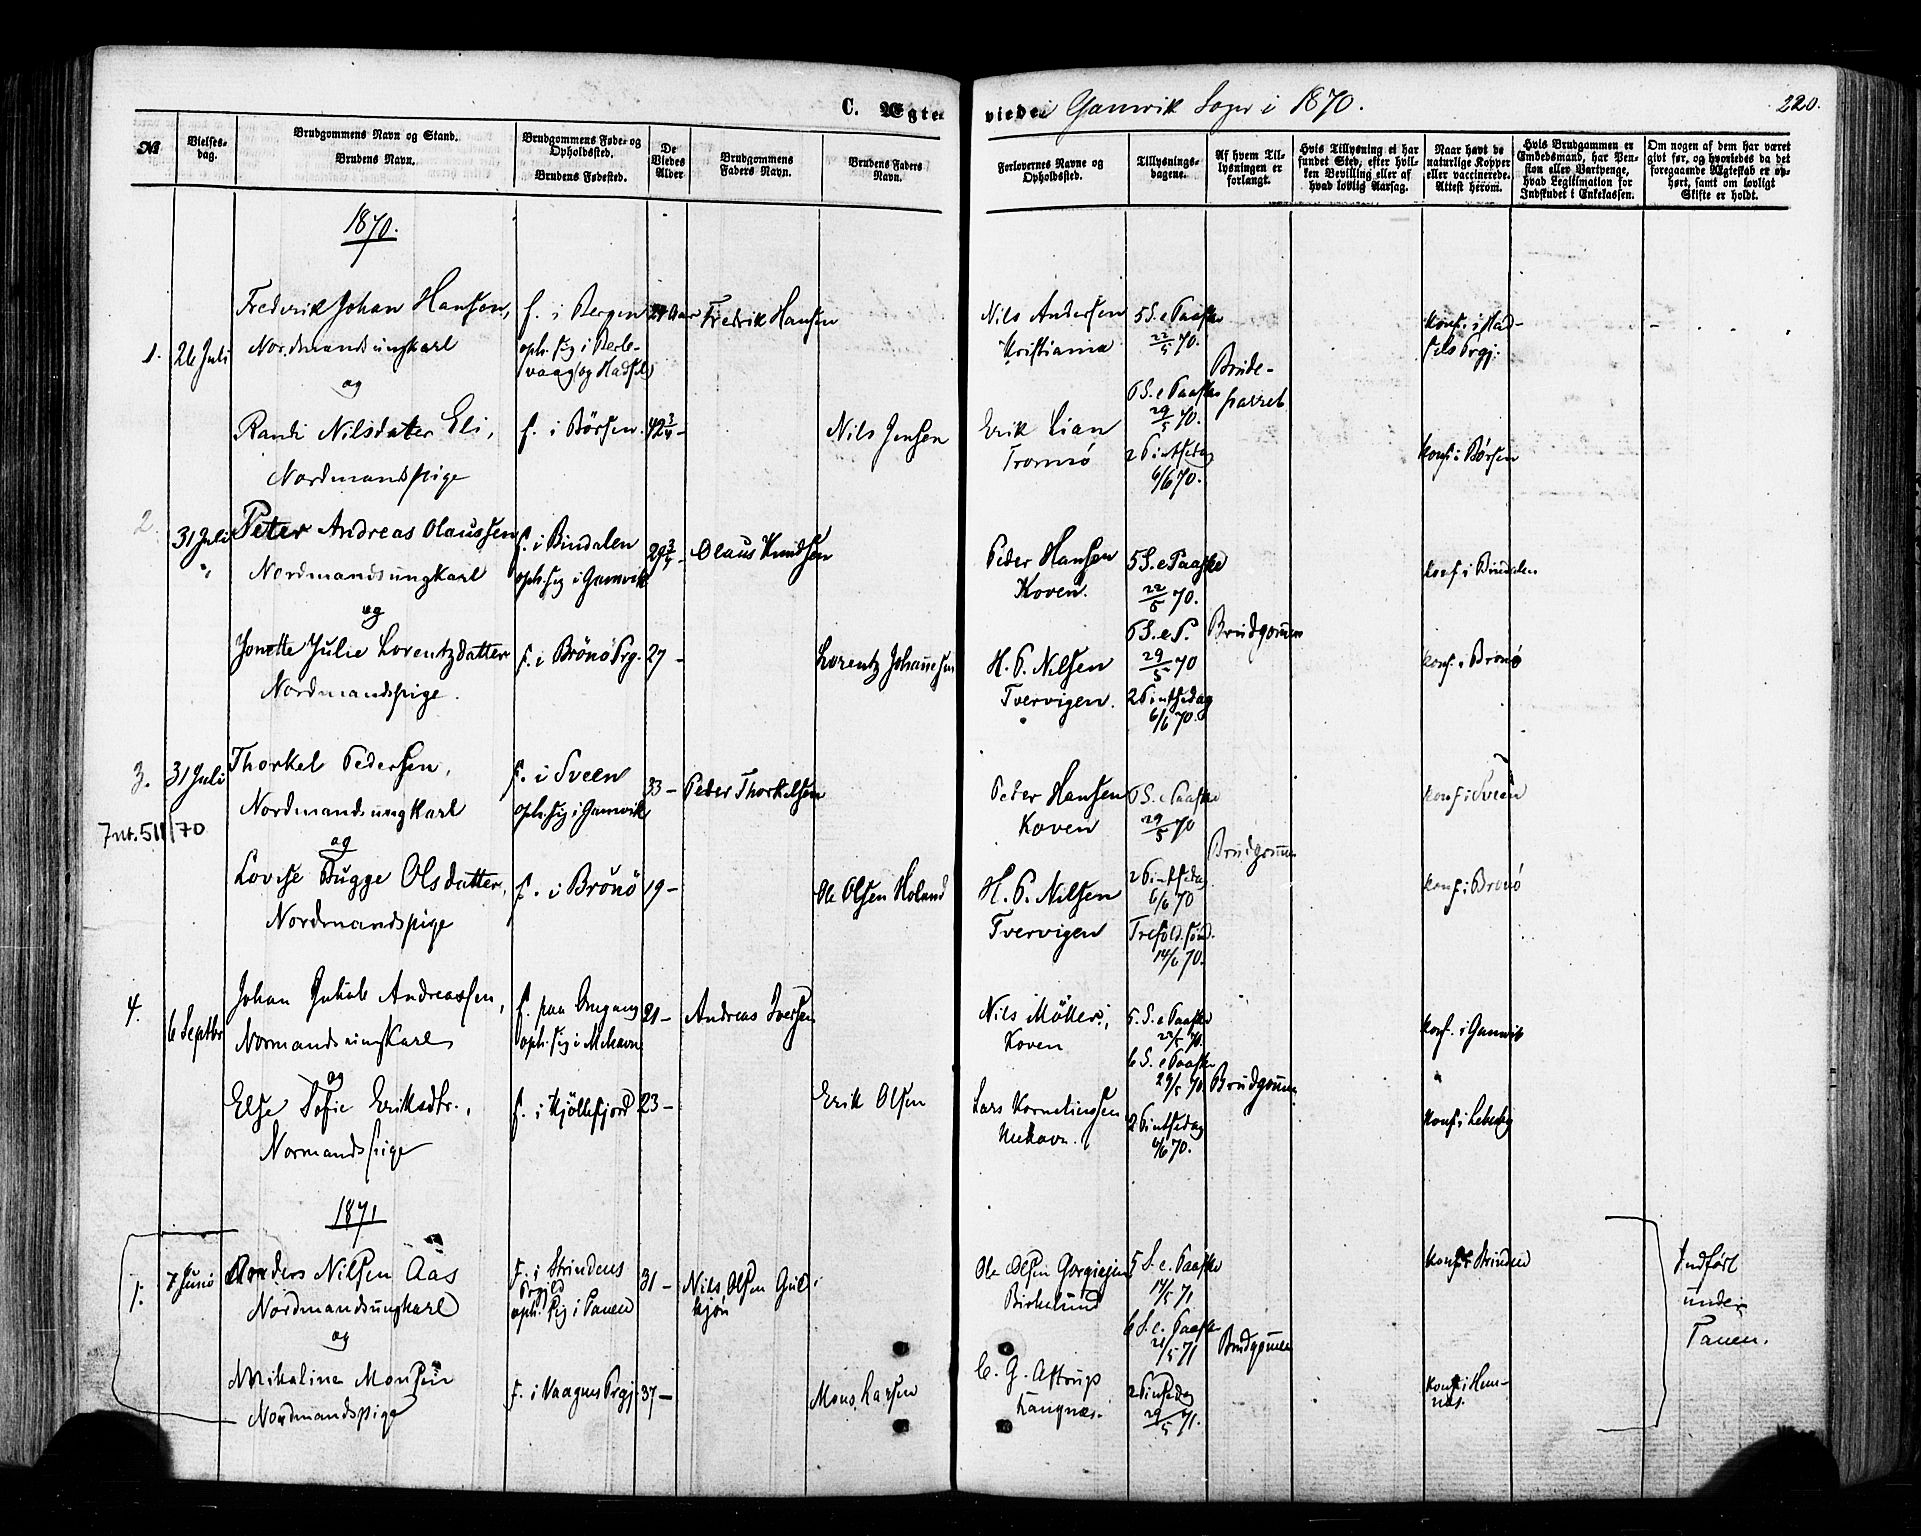 C. Ægteviede i Gamvik Sogn i 1870.
220.
№
Vielsesdag.
Brudgommens Navn og Stand.
Brudens Navn.
Brudgommens Føde- og
Opholdssted.
Brudens Fødested.
De
Viedes
Alder
Brudgommens
Faders Navn.
Brudens Faders
Navn.
Forlovernes Navne og
Opholdssted.
Tillysnings-
dagene.
Af hvem Til-
lysningen er
forlangt.
Hvis Tillysning ei har
fundet Sted, efter hvil-
ken Bevilling eller af
hvad lovlig Aarsag.
Naar havt de
naturlige Kopper
eller vaccinerede.
Attest herom.
Hvis Brudgommen er
Embedsmand, har Pen-
sion eller Vartpenge,
hvad Legitimation for
Indskudet i Enkekassen.
Om nogen af dem har været
gift før, og hvorledes da det
foregaaende Ægteskab er op-
hørt, samt om lovligt
Skifte er holdt.
1870.
1. 26 Juli
Frederik Johan Hansen,
Nordmandsungkarl
og
Randi Nilsdatter Eli,
Nordmandspige
f. i Bergen
oph. sig i Berle-
vaag og Hadsel
f. i Börsen
Aar
42 3/4 -
Fredrik Hansen
Nils Jensen
Nils Andersen
Kristiania
Erik Lian
Tromsö
5 S. e Paaske
22/5 70.
6 S. e Paaske
29/5 70.
2 Pintsedag
6/6 70.
Brude-
parret
Konf. i Had-
sels Prgj.
Konf. i Börsen
2. 31 Juli
Peter Andreas Olaussen
Nordmandsungkarl
og
Jonette Julie Lorentzdatter
Nordmandspige.
f. i Bindalen
oph. sig i Gamvik
f. i Brönö Prg.
29 3/4 -
27 -
Olaus Knudsen
Lorentz Johannesen
Peder Hansen
Koven.
H. P. Nilsen
Tvervigen.
5 S. e Paaske
22/5 70.
6 S. e P.
29/5 70
2 Pintsedag
6/6 70.
Brudgommen
Konf. i Bindalen
Konf. i Brönö
3. 31 Juli
Jnt. 511/70
Thorkel Pedersen,
Nordmandsungkarl
og
Lovise Bugge Olsdatter,
Nordmandspige
f. i Sveen
oph. sig i Gamvik
f. i Brönö
33 -
19 -
Peder Thorkelsen
Ole Olsen Holand
Peter Hansen
Koven
H. P. Nilsen
Tvervigen
6 S. e Paaske
29/5 70
2 Pintsedag
6/6 70
Trefold. sönd.
14/6 70.
Brudgommen
Konf. i Sveen
Konf. i Brönö
4. 6 Septbr
Johan Jakob Andreassen,
Normandsungkarl
og
Else Sofie Eriksdtr.,
Normandspige
f. paa Omgang
oph. sig i Mehavn
f. i Kjöllefjord
21 -
23 -
Andreas Iversen
Erik Olsen
Nils Möller,
Koven
Lars Korneliussen
Mehavn.
5. S. e Paaske
22/5 70.
6 S. e Paaske
29/5 70
2 Pintsedag
6/6 70.
Brudgommen
Konf. i Gamvik
Konf. i Lebesby
1871
1. 7 Junio
Anders Nilsen Aas
Nordmandsungkarl
og
Mikaline Monsen
Nordmandspige
f. i Strindens
Prgjld
oph. sig i Tanen
f. i Vaagens Prgj.
31 -
37 -
Nils Olsen
Mons Larsen
Ole Olsen
Birkelund
C. G. Astrup
Langnæs.
5 S. e. Paaske
14/5 71
6 S. e. Paaske
21/5 71
2 Pintsedag
29/5 71.
Brudgommen
Konf. i Strinden
Konf. i Hem-
næs.
Indfört
under
Tanen.